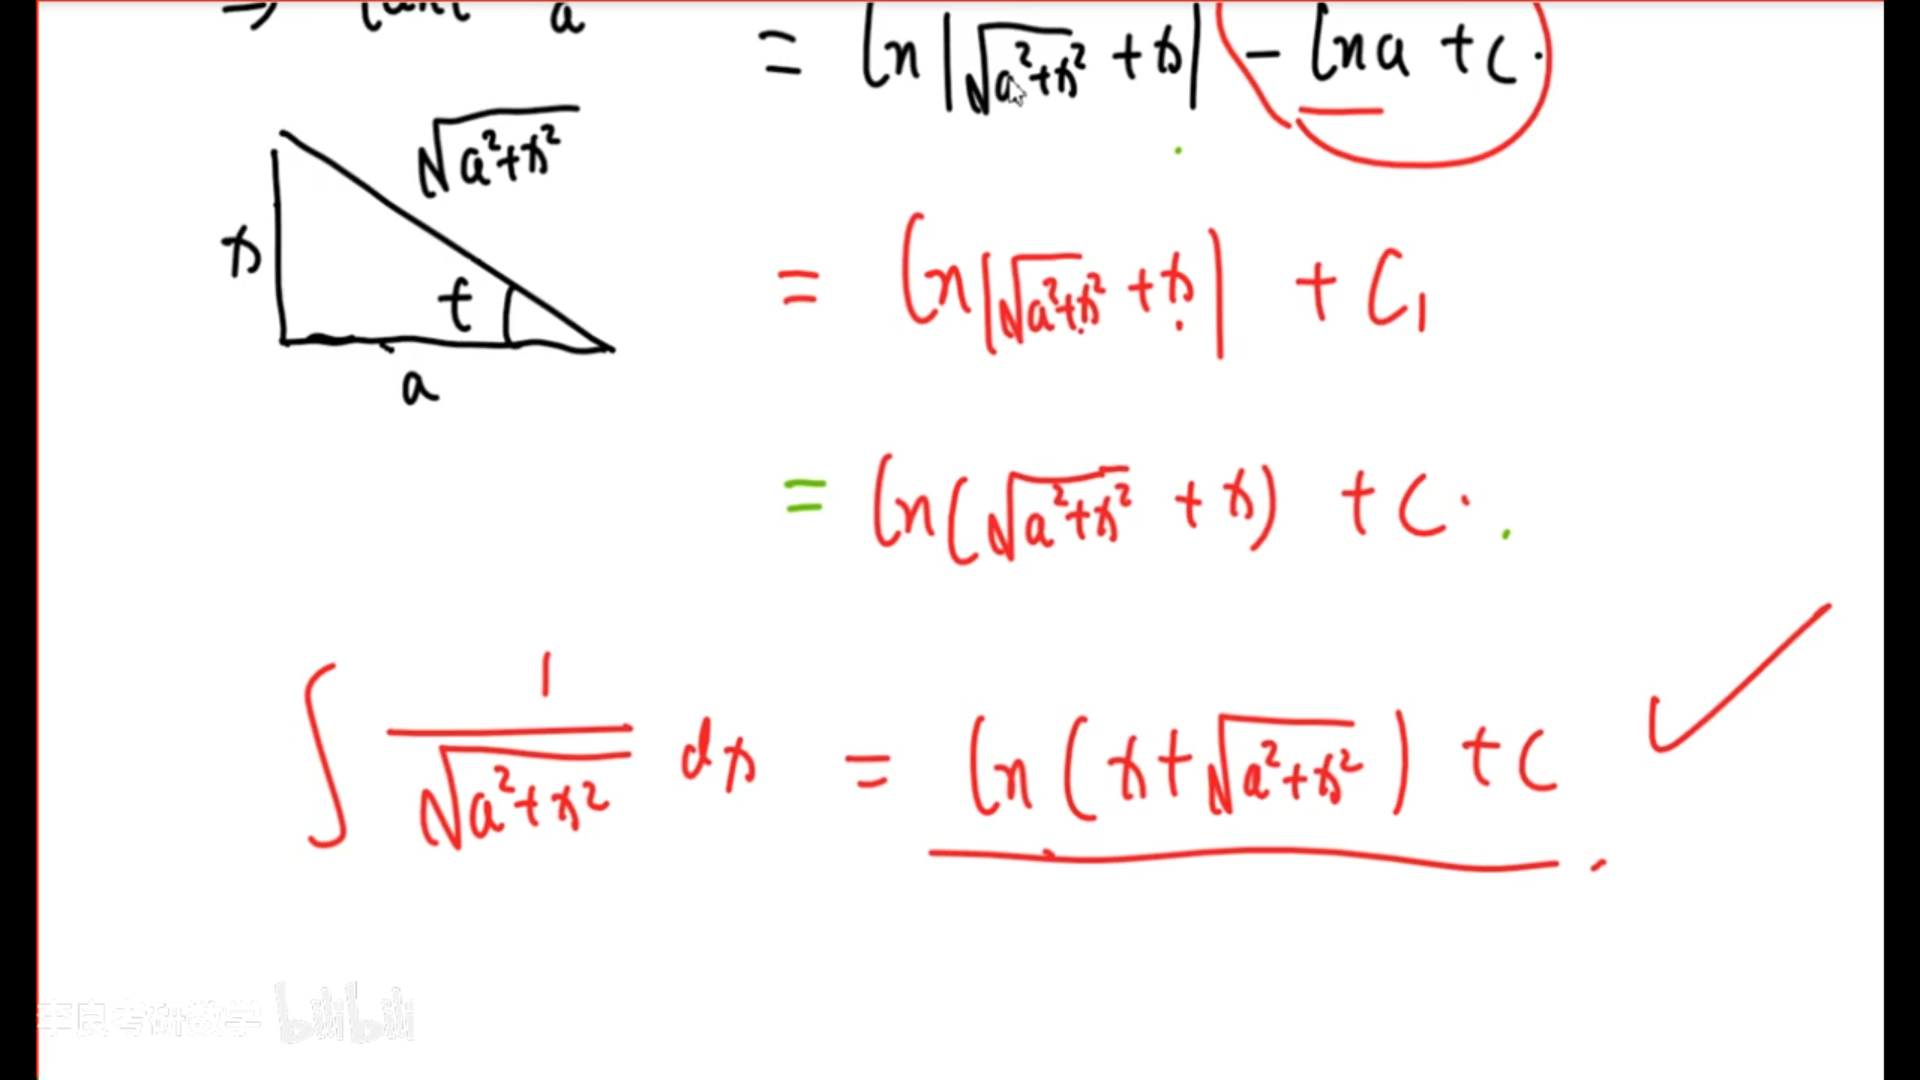 ⇒ tant a
= ln|√(a²+x²) + x| - lna + c.
√(a²+x²)
x
t
a
= ln|√(a²+x²) + x| + C₁
= ln(√(a²+x²) + x) + C.
∫ 1/√(a²+x²) dx = ln(x+√(a²+x²)) + C
李良考研数学 bilibili